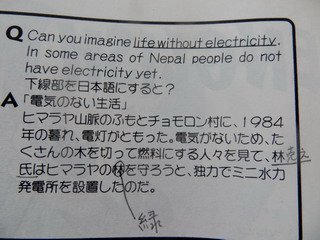 Q Can you imagine life without electricity.
In some areas of Nepal people do not
have electricity yet.
下線部を日本語にすると?
A 「電気のない生活」
ヒマラヤ山脈のふもとチョモロン村に、1984
年の暮れ、電灯がともった。電気がないため、た
くさんの木を切って燃料にする人々を見て、林
氏はヒマラヤの林を守ろうと、独力でミニ水力
発電所を設置したのだ。
緑